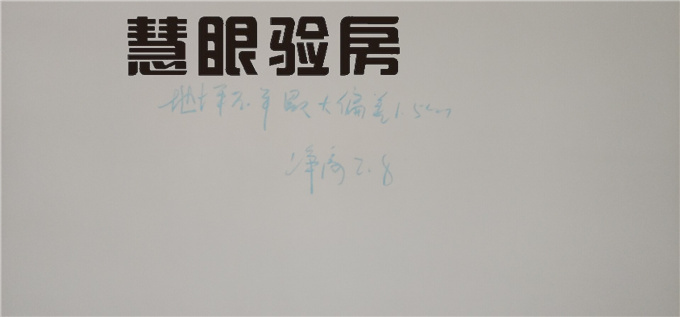 慧眼验房
地坪不平最大偏差1.5cm
净高2.8